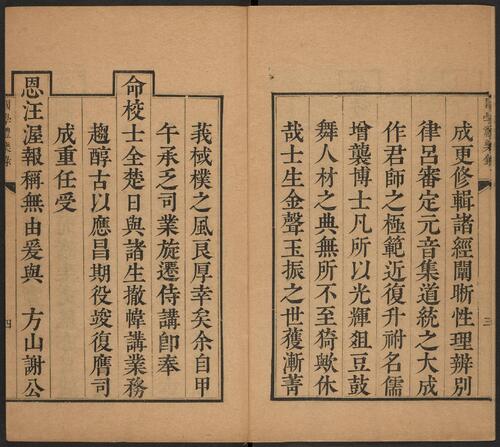 成更修輯諸經闡晣性理辨別
律呂審定元音集道統之大成
作君師之極範近復升祔名儒
增襲博士凡所以光輝俎豆鼓
舞人材之典無所不至猗歟休
哉士生金聲玉振之世獲漸菁
三
莪棫樸之風良厚幸矣余自甲
午承乏司業旋遷侍講卽奉
命校士全楚日與諸生撤幃講業務
趨醇古以應昌期役竣復膺司
成重任受
恩汪濊報稱無由爰與 方山謝公
國學禮樂錄
四